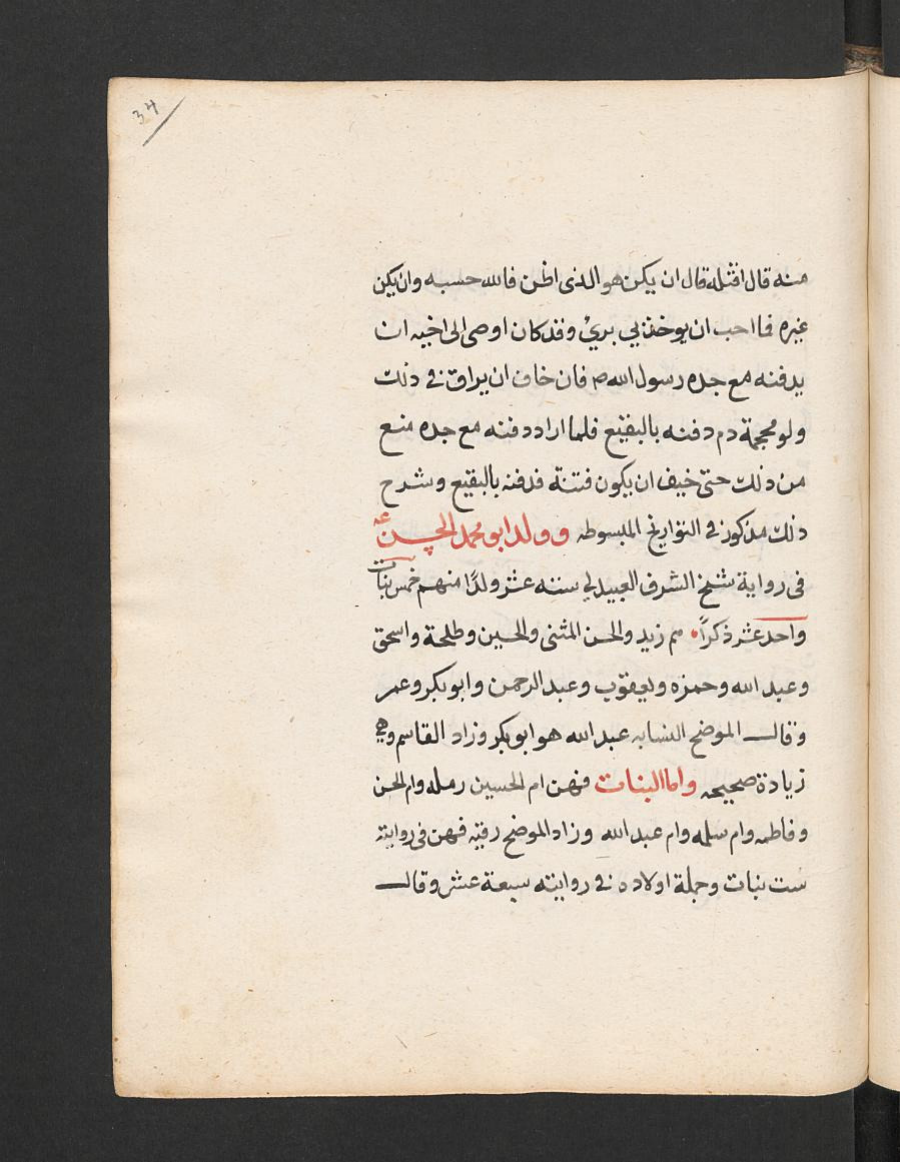 34
منه قال اقتله قال ان يكن هو الذى اظن فالله حسبه وان يكن
غيره فا احب ان يوخذ بي برئ وقد كان اوصى الى اخيه ان
يدفنه مع جده رسول الله ص فان خاف ان يراق فى ذلك
ولو محجمة دم دفنه بالبقيع فلما اراد دفنه مع جده منع
من ذلك حتى خيف ان يكون فتنة فدفنه بالبقيع وشرح
ذلك مذكور فى التواريخ المبسوطه وولد ابو محمد الحسن عه
فى رواية شيخ الشرف العبيدلي سته عشر ولدًا منهم خمس بنات
واحد عشر ذكرًا هم زيد والحسن المثنى والحسين وطلحة واسحق
وعبد الله وحمزه ويعقوب وعبد الرحمن وابو بكر وعمر
وقال الموضح النسابه عبد الله هو ابو بكر وزاد القاسم وهى
زيادة صحيحه واما البنات فهن ام الحسين رمله وام الحسن
وفاطمه وام سلمه وام عبد الله وزاد الموضح رقيه فهن فى روايته
ست بنات وجملة اولاده فى روايته سبعة عشر وقال